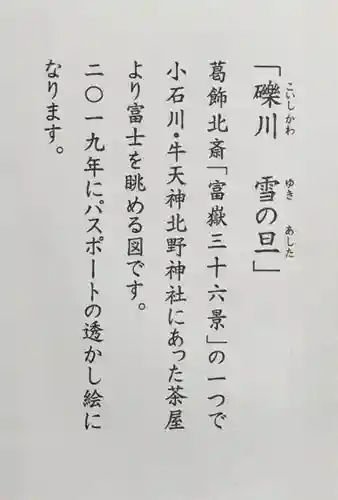 「礫川　雪の旦」
こいしかわ　ゆき　あした
葛飾北斎「富嶽三十六景」の一つで
小石川・牛天神北野神社にあった茶屋
より富士を眺める図です。
二〇一九年にパスポートの透かし絵に
なります。